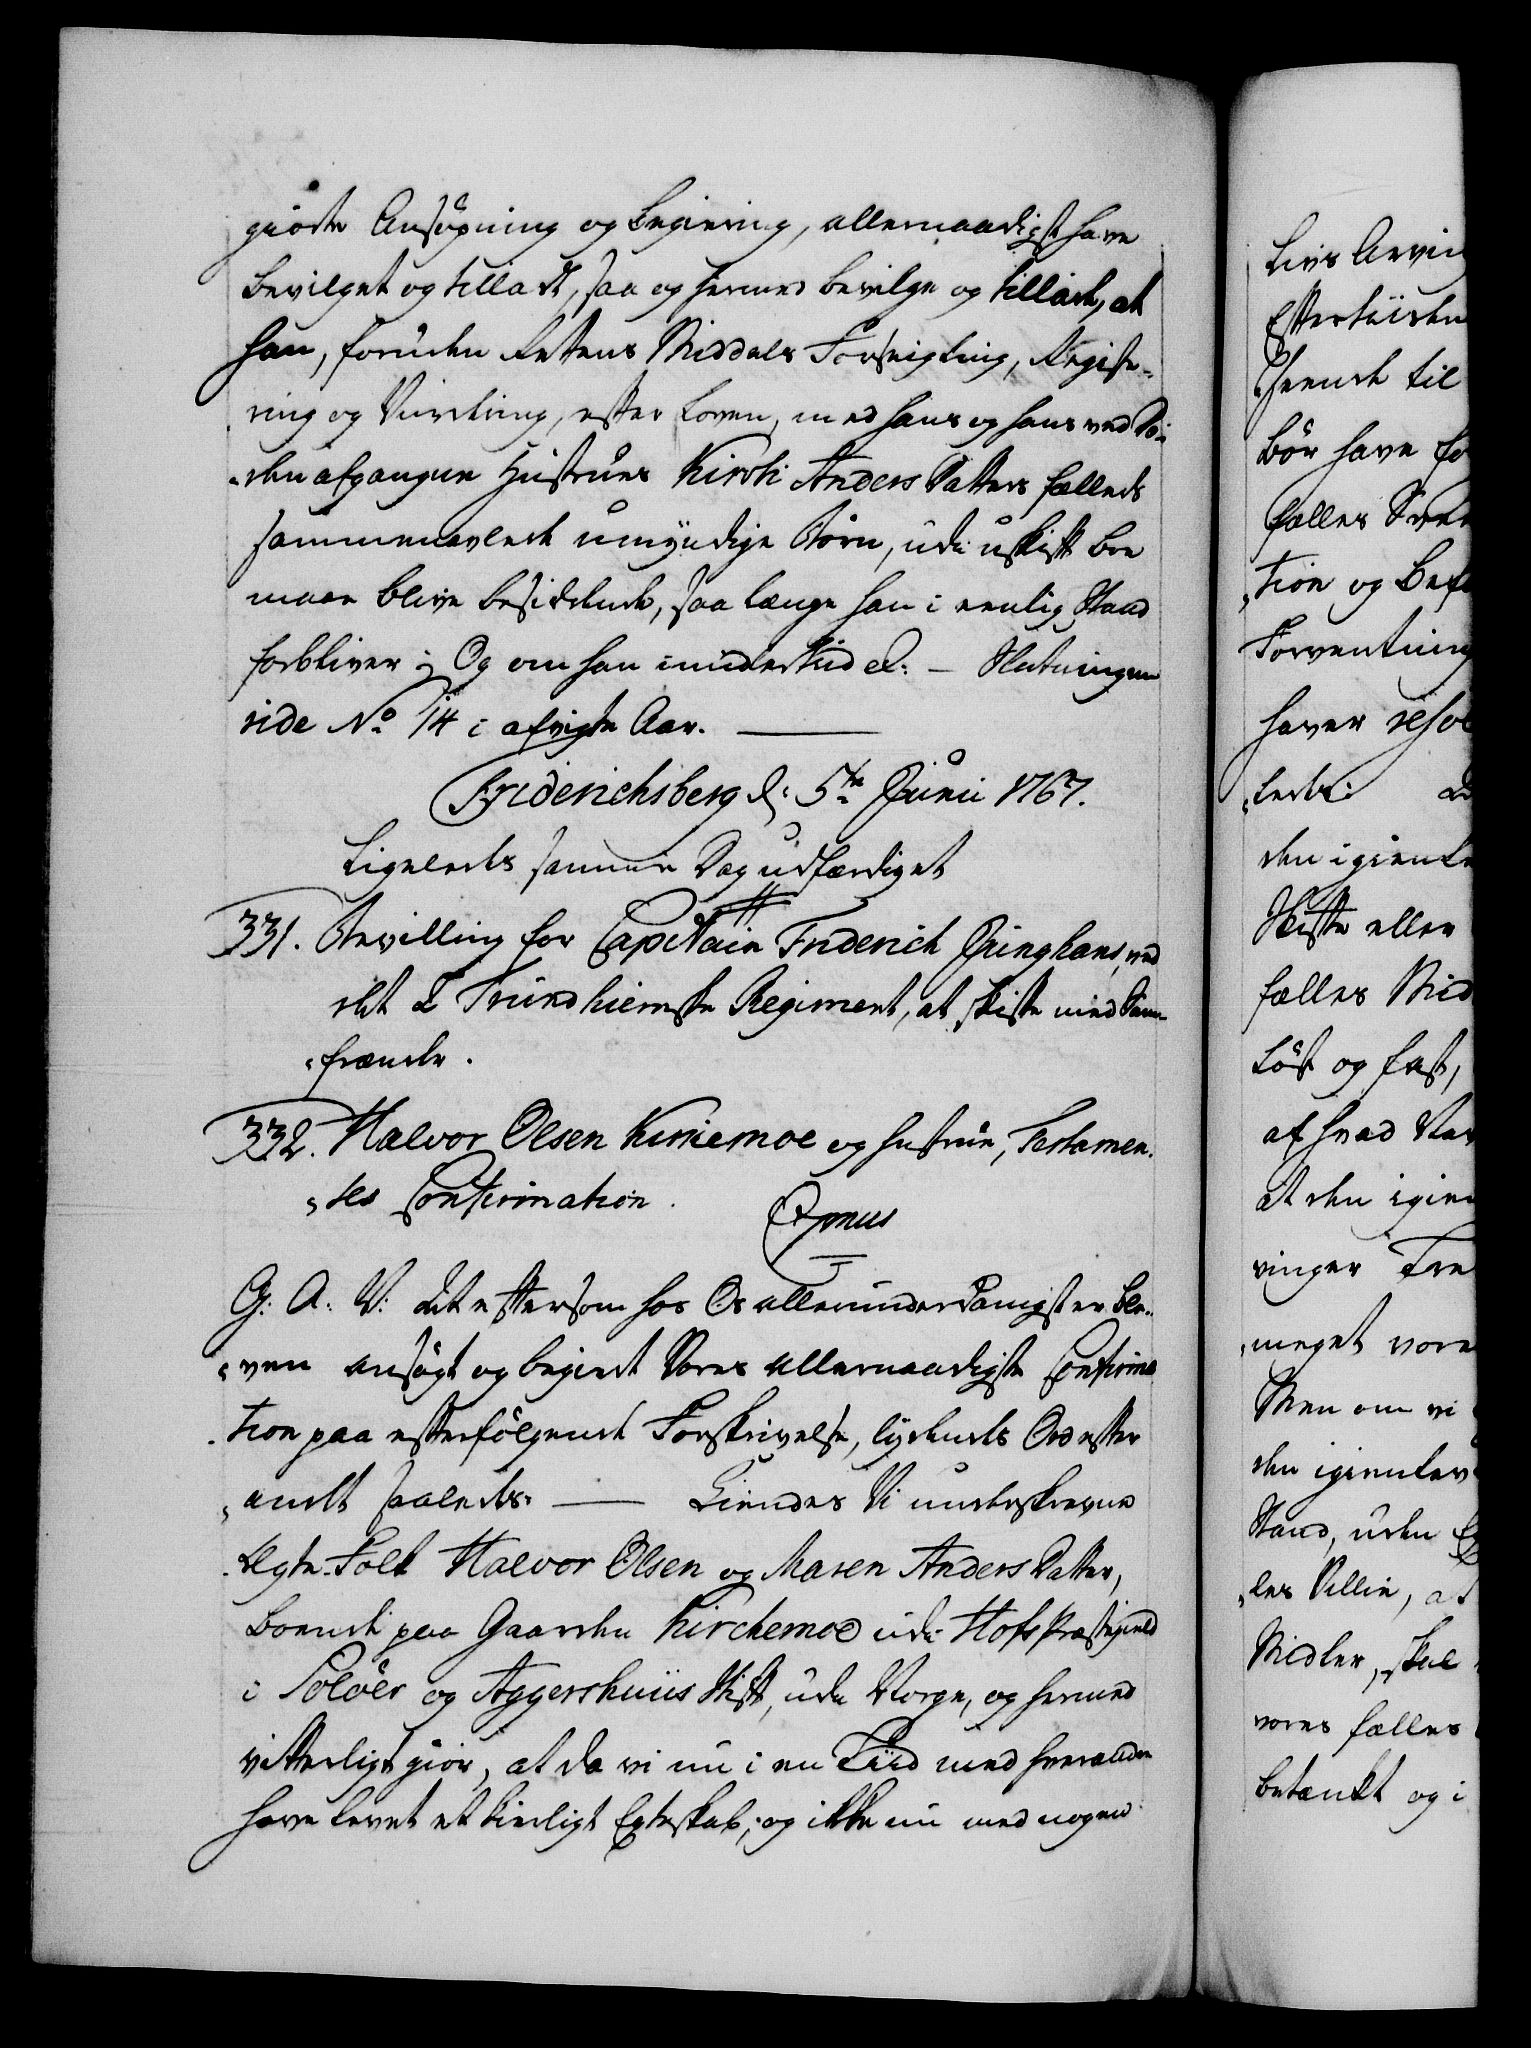 giorte Ansøgning og begiering, allernaadigst have
bevilget og tilladt, saa og hermed bevilge og tillade, at
han, foruden Rettens Middels Forseigling, Registe-
ring og Vurdering, efter Loven, med hans og hans ved Dø-
den afgangne Hustrues Kirsti Anders Datters fælleds
sammenavlede umyndige Børn, udi uskift Boe
maae blive besiddende, saa længe han i eenlig Stand
forbliver; Og om han imidlertiid &: - Slutningen
vide No. 14 i afvigte Aar.
Friderichsberg d: 5te Junii 1767.
Ligeleedes samme Dag udfærdiget
331. Bevilling for Capitain Friderich Junghans, ved
det 2 Trundhiemske Regiment, at skifte med Sam-
frænde.
332. Halvor Olsen Kirkemoe og Hustrue, Testamen-
tes Confirmation.
G: A: V: at eftersom hos Os allerunderdanigst er ble-
ven ansøgt og begiert Vores allernaadigste Confirma
tion paa efterfølgende Forskrivelse, lydende Ord efter
andet saaledes: Kiendes Vi underskrevne
Ægte-Folk Halvor Olsen og Maren Anders Datter,
boende paa Gaarden Kirchemoe udi Hofs Præstegield
i Soløer og Aggershuus Stift, udi Norge, og hermed
vitterligt giør, at da vi nu i en Tiid med hverandre
have levet et kierligt Egteskab, og ikke nu med nogen
Livs Arvin
Efterkiærden
Skeende til
bør have fo
fælles
tion og Bef
Forventning
haver
ledes:
den igienle
Skifte eller
fælles Mid
Løst og fast,
af hvad Nav
at den igien
vinger
meget vore
Men om vi
den igienlev
Stand, uden
les Villie, at
Midler, skal
vores fælles
betænkt og i